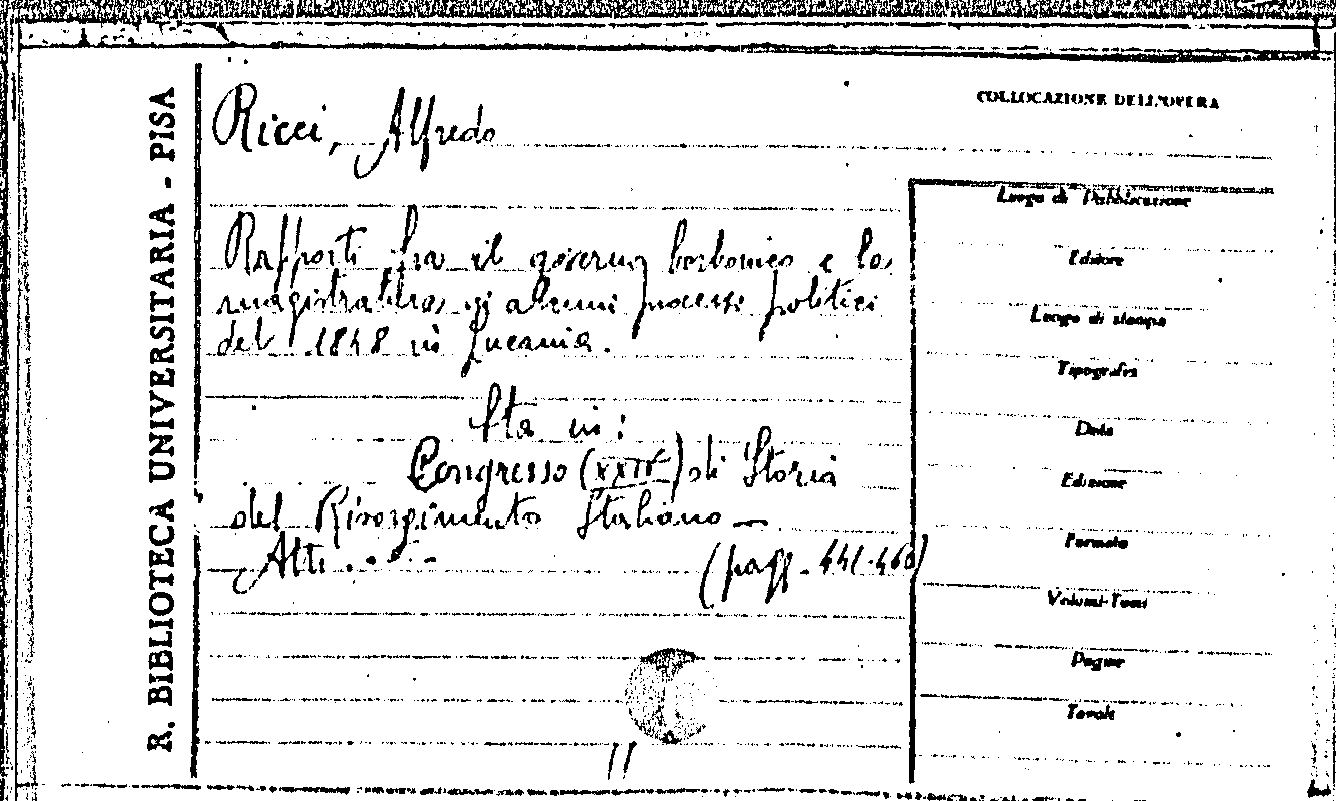 R. BIBLIOTECA UNIVERSITARIA - PISA
COLLOCAZIONE DELL'OPERA
Ricci, Alfredo
Rapporti fra il governo borbonico e la
magistratura in alcuni processi politici
del 1848 in Lucania.
Sta in:
Congresso (XXIV) di Storia
del Risorgimento Italiano —
Atti.....
(pagg. 441-460)
Luogo di Pubblicazione
Editore
Luogo di stampa
Tipografia
Data
Edizione
Formato
Volumi-Tomi
Pagine
Tavole